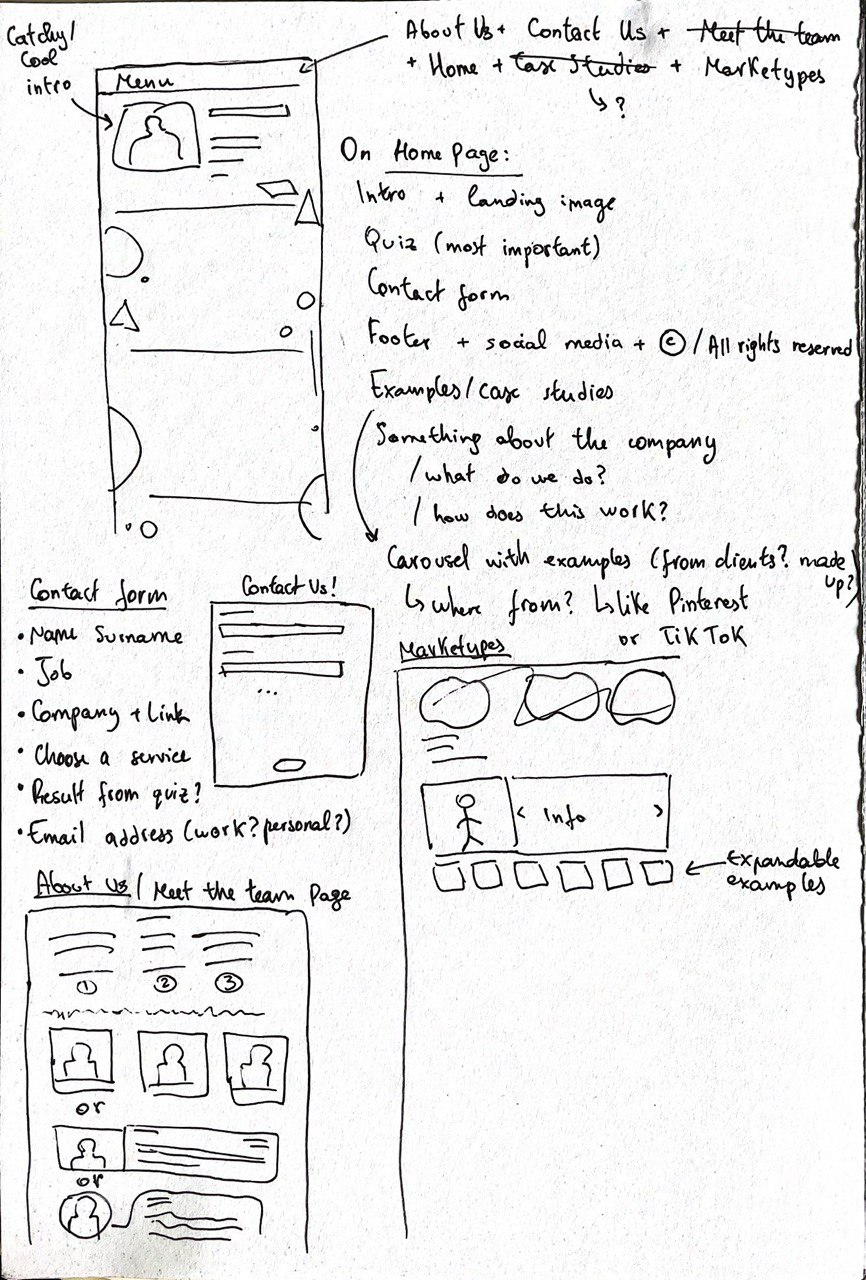 Catchy/
Cool
intro
About Us + Contact Us + Meet the team
+ Home + Case Studies + Marketypes
↳ ?
Menu
On Home Page:
Intro + landing image
Quiz (most important)
Contact form
Footer + social media + © / All rights reserved
Examples/case studies
Something about the company
/what do we do?
/ how does this work?
Carousel with examples (from clients? made up?)
↳ where from? ↳ like Pinterest
or TikTok
Contact form
• Name Surname
• Job
• Company + Link
• Choose a service
• Result from quiz?
• Email address (work? personal?)
Contact Us!
...
Marketypes
< Info >
Expandable
examples
About Us / Meet the team page
1 2 3
or
or